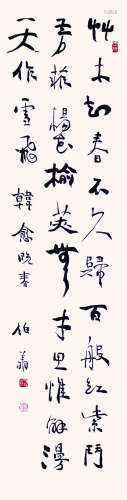 艸木知春不久歸百般紅紫鬥
芳菲楊花榆莢無才思惟解漫
天作雪飛 韓愈晚春 伯翔